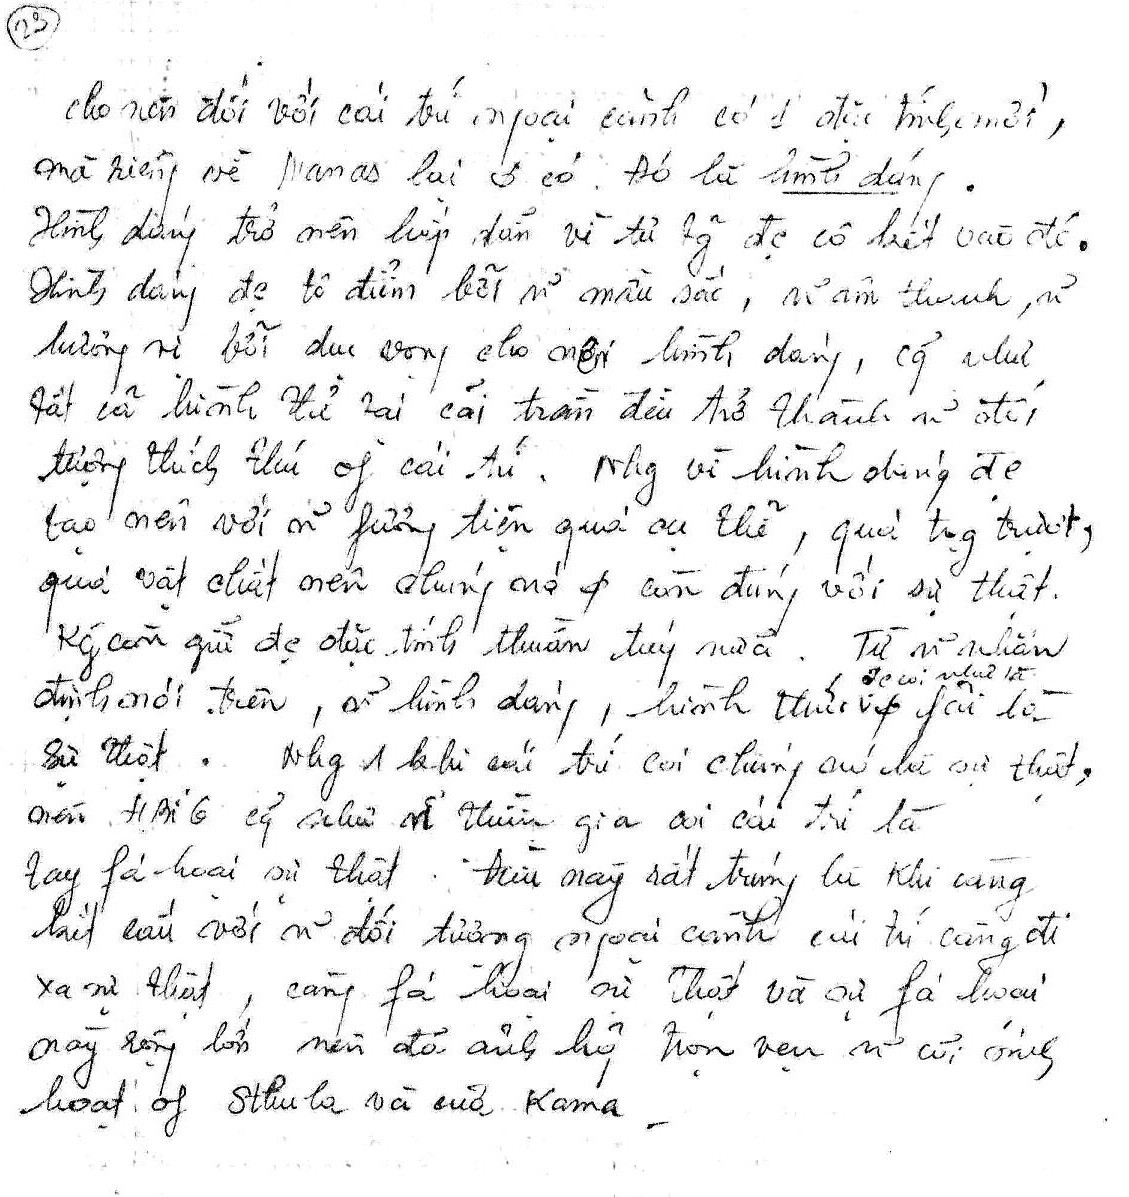 23
cho nên đối với cái trí ngoại cảnh có 1 đặc tính mới,
mà riêng về Manas lại có. Đó là hình dáng.
Hình dáng trở nên hấp dẫn vì tư tg đc cô kết vào đó.
Hình dáng đc tô điểm bởi màu sắc, âm thanh,
hưởng vị bởi dục vọng cho nên hình dáng, cg như
tất cả hình thể tại cõi trần đều trở thành đối
tượng thích thú of cái trí. Nhg vì hình dáng đc
tạo nên với fương tiện quá cụ thể, quá trg trược,
quá vật chất nên chúng nó còn đúng với sự thật.
Kg còn giữ đc đặc tính thuần túy nữa. Từ nhận
đc coi như là
định nói trên, hình dáng, hình thức fải là
sự thật. Nhg 1 khi cái trí coi chúng nó là sự thật,
nên cg như thiền gia coi cái trí là
tay fá hoại sự thật. Điều này rất trúng là khi càng
kết cấu với đối tượng ngoại cảnh cái trí càng đi
xa sự thật, càng fá hoại sự thật và sự fá hoại
này rộng lớn nên đã ảnh hg trọn vẹn cõi
hoạt of Sthula và của Kama